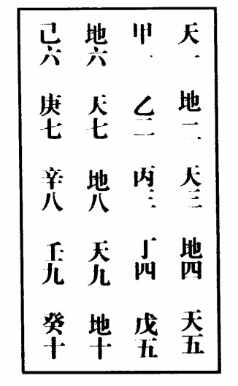 天一 地二 天三 地四 天五
甲一 乙二 丙三 丁四 戊五
地六 天七 地八 天九 地十
己六 庚七 辛八 壬九 癸十